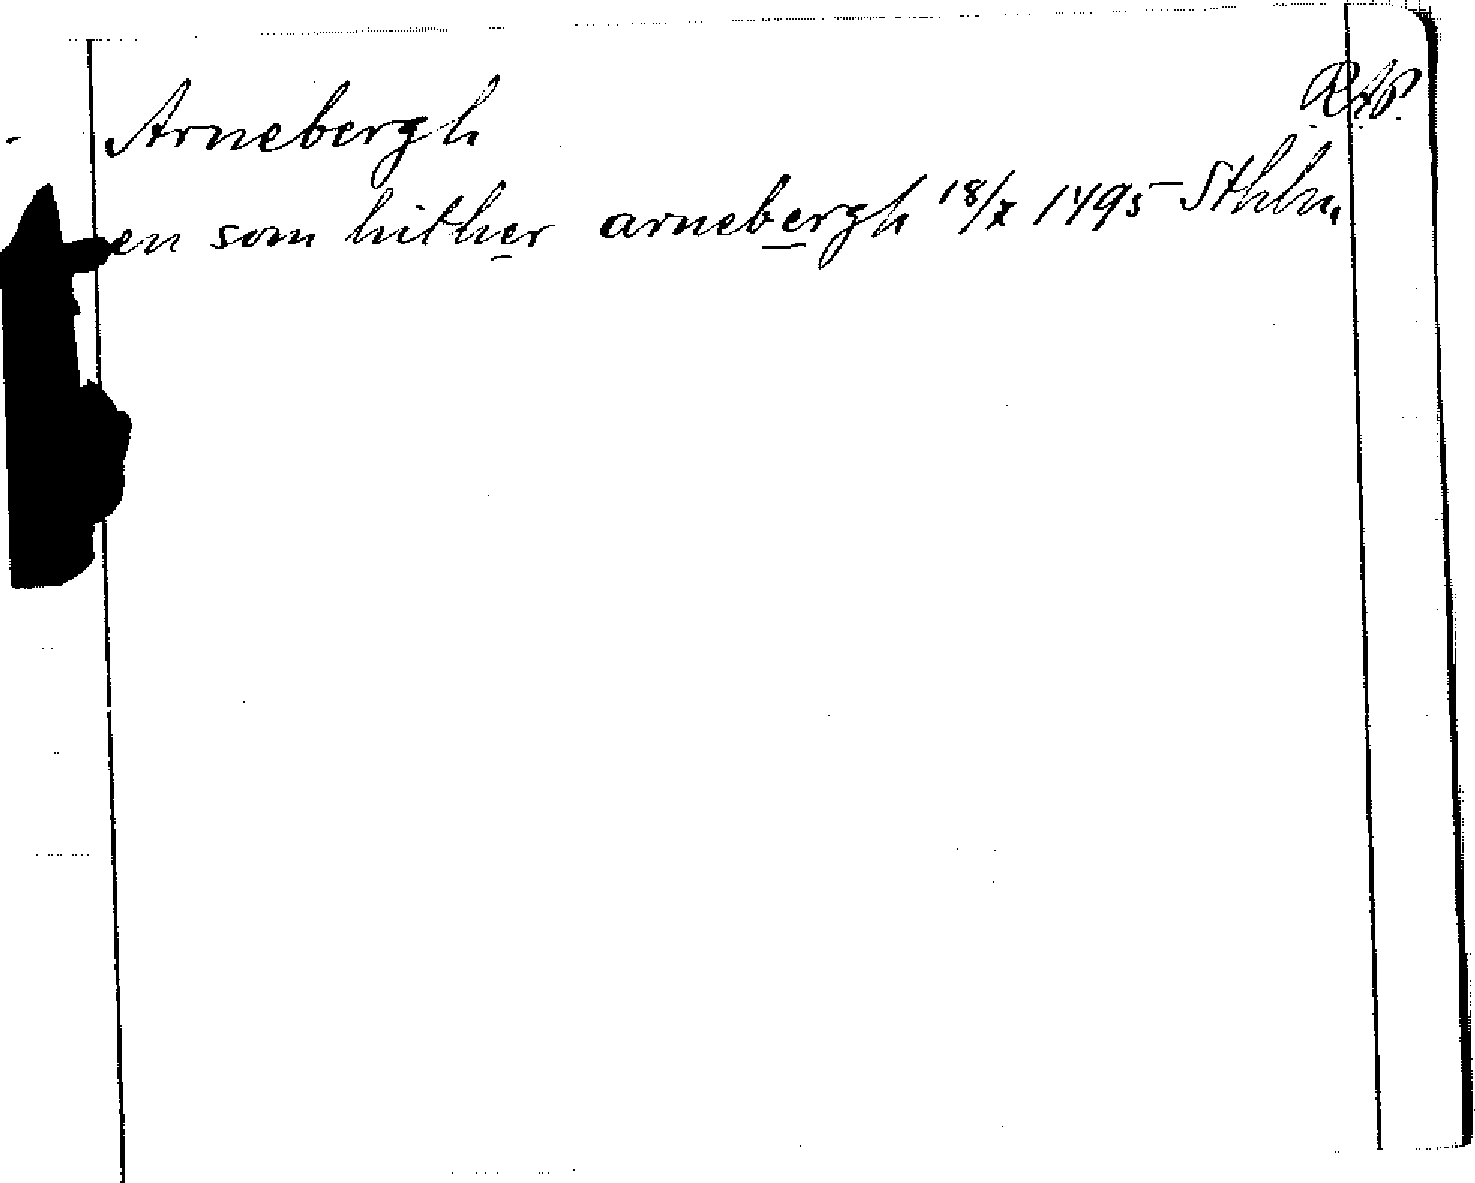 Arnebergh
RAP.
en som hither arnebergh 18/X 1495 Sthlm.